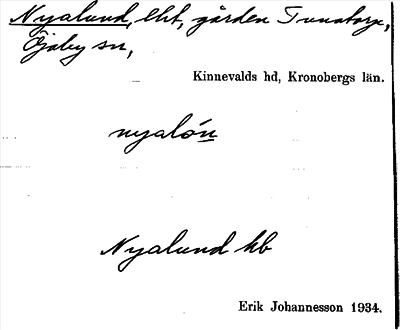 Nyalund, lht, gården Tunatorp,
Öjaby sn,
Kinnevalds hd, Kronobergs län.
nyalón
Nyalund kb
Erik Johannesson 1934.